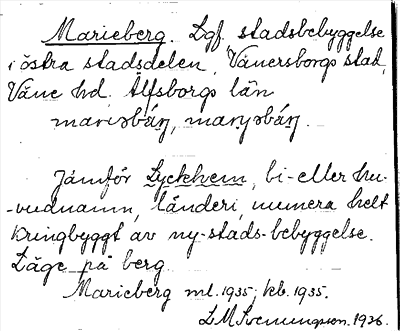 Marieberg. Lgf. stadsbebyggelse
i östra stadsdelen, Vänersborgs stad,
Väne hd. Älfsborgs län
mariəbáŋ, marɥsbáŋ.
Jämför Lyckhem, bi- eller hu-
-vudnamn, länderi, numera helt
kringbyggt av ny-stads-bebyggelse.
Läge på berg.
Marieberg ml. 1935; kb. 1935.
L M Svenungson. 1936.